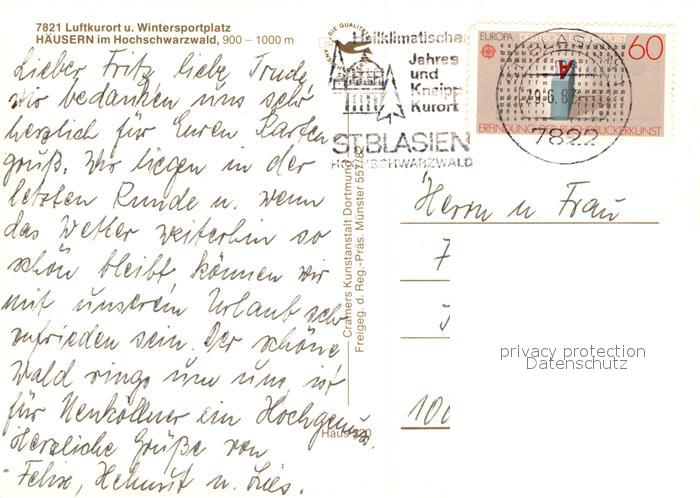 7821 Luftkurort u. Wintersportplatz
HÄUSERN im Hochschwarzwald, 900 – 1000 m
Lieber Fritz, liebe Trude,
wir bedanken uns sehr
herzlich für Euren Karten
gruß. Wir liegen in der
letzten Runde u. wenn
das Wetter weiterhin so
schön bleibt können wir
mit unserem Urlaub sehr
zufrieden sein. Der schöne
Wald rings um uns ist
für Neuköllner ein Hochgenuß.
Herzliche Grüße von
Felix, Helmut u. Lies.
Cramers Kunstanstalt Dortmund
Freigeg. d. Reg.-Präs. Münster 557/82
Häus 320
DIE QUALITÄTS
Heilklimatischer
Jahres
und
Kneipp
Kurort
ST.BLASIEN
HOCHSCHWARZWALD
EUROPA DEUTSCHE BUNDESPOST 60
ERFINDUNG DER BUCHDRUCKERKUNST
BLASIEN
7822
Herrn u. Frau
privacy protection
Datenschutz